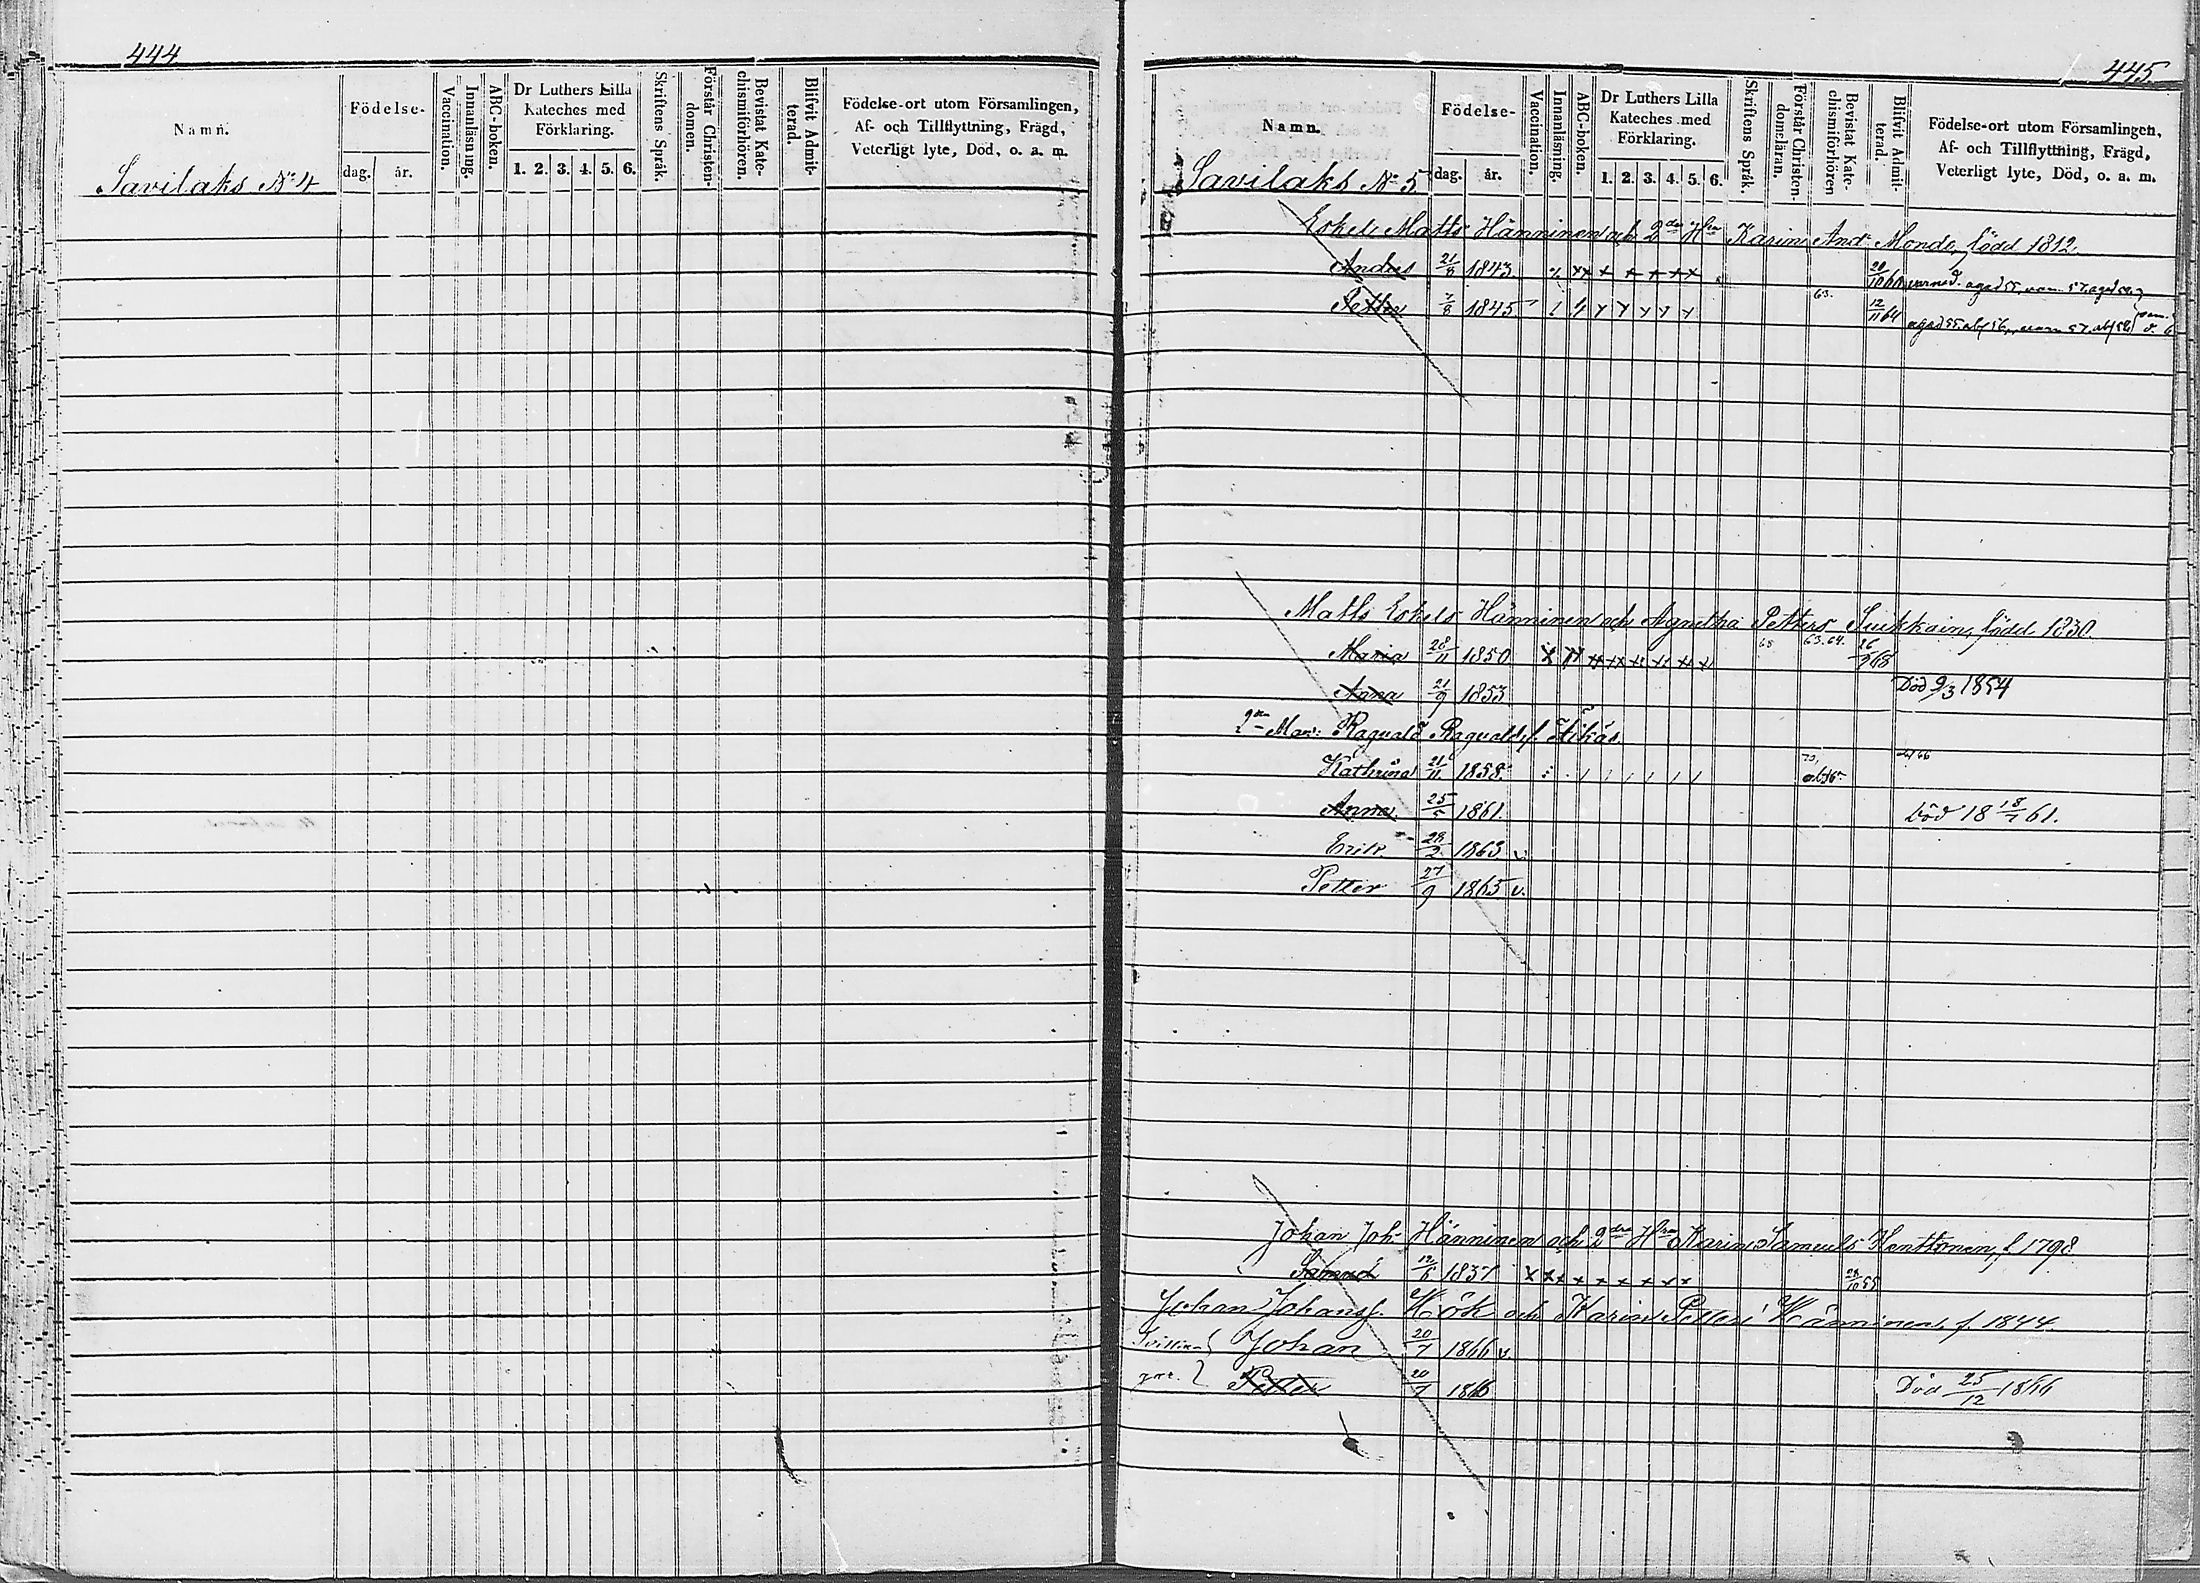 444
Namn.
Födelse-
dag. år.
Vaccination.
Innanläsning.
ABC-boken.
Dr Luthers Lilla Kateches med Förklaring.
1. 2. 3. 4. 5. 6.
Skriftens Språk.
Förstår Christendomen.
Bevistat Katechismiförhören.
Blifvit Admitterad.
Födelse-ort utom Församlingen,
Af- och Tillflyttning, Frägd,
Veterligt lyte, Död, o. a. m.
Savilaks No 4
445.
Namn.
Födelse-
dag. år.
Vaccination.
Innanläsning.
ABC-boken.
Dr Luthers Lilla
Kateches med
Förklaring.
1. 2. 3. 4. 5. 6.
Skriftens Språk.
Förstår Christendomsläran.
Bevistat Katechismiförhören
Blifvit Admitterad.
Födelse-ort utom Församlingen,
Af- och Tillflyttning, Frägd,
Veterligt lyte, Död, o. a. m.
Savilaks No 5
Eskel Matts Hänninen och 2dra Hru Karin And. Monde, född 1812.
Anders 21/8 1843
Petter 7/8 1845 63. 12/11 64
Matts Eskels Hänninen och Agnetha Petters Suikkain, född 1830.
Maria 28/11 1850 68 63.64. 26/5 68
Anna 21/9 1853 Död 9/3 1854
2dra Man: Raguald Ragualds f. Äikäs
Kathrina 21/11 1858.
Anna 25/5 1861. Död 18 18/7 61.
Erik 28/2 1863 v.
Petter 27/9 1865 v.
Johan Joh. Hänninen och 2dra Hru Karin Samuels Henttonen, f. 1798
Samuel 12/6 1837 28/10 55
Johan Johansf. Hök och Karin Petters Hänninen, f. 1844.
Tvillin- Johan 20/7 1866 v.
gar. Petter 20/7 1866 Död 25/12 1866